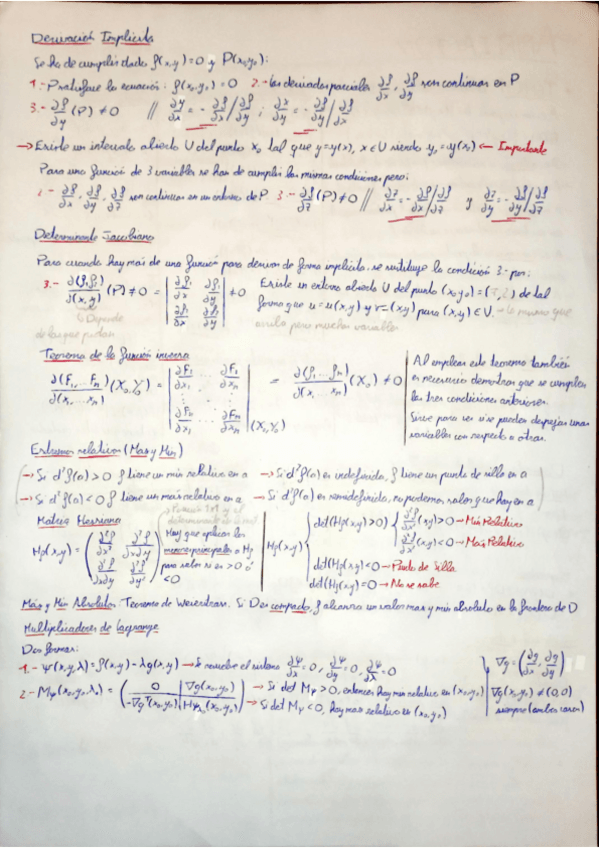 Derivación Implícita
Se ha de cumplir dada f(x,y)=0 y P(x₀,y₀):
1.- P satisface la ecuación: f(x₀,y₀)=0 2.- Las derivadas parciales ∂f/∂x, ∂f/∂y son continuas en P
3.- ∂f/∂y (P) ≠ 0 // ∂y/∂x = - ∂f/∂x / ∂f/∂y ; ∂x/∂y = - ∂f/∂y / ∂f/∂x
→ Existe un intervalo abierto U del punto x₀ tal que y=y(x), x∈U siendo y₀=y(x₀) ← Importante
Para una función de 3 variables se han de cumplir las mismas condiciones pero:
2.- ∂f/∂x, ∂f/∂y, ∂f/∂z son continuas en un entorno de P. 3.- ∂f/∂z (P) ≠ 0 // ∂z/∂x = - ∂f/∂x / ∂f/∂z y ∂z/∂y = - ∂f/∂y / ∂f/∂z
Determinante Jacobiano
Para cuando hay más de una función para derivar de forma implícita, se sustituye la condición 3.- por:
Existe un entorno abierto U del punto (x₀,y₀) = de tal
forma que u=u(x,y) y v=(x,y) para (x,y)∈U.
Depende
de las que pidan
Teorema de la función inversa
Al emplear este teorema también
es necesario demostrar que se cumplen
las tres condiciones anteriores.
Sirve para ver si se pueden despejar unas
variables con respecto a otras.
Extremos relativos (Max y Min)
→ Si d²f(a)>0 f tiene un min relativo en a → Si d²f(a) es indefinida, f tiene un punto de silla en a
→ Si d²f(a)<0 f tiene un max relativo en a → Si d²f(a) es semidefinida, no podemos saber que hay en a
Matriz Hessiana
Hay que aplicar los
menores principales a Hf
para saber si es >0 ó
<0
det(Hf(x,y)>0) ∂²f/∂x² (x,y)>0 → Min Relativo
∂²f/∂x² (x,y)<0 → Max Relativo
det(Hf(x,y)<0 → Punto de Silla
det(Hf(x,y)=0 → No se sabe
Max y Min Absolutos: Teorema de Weierstrass. Si D es compacto, f alcanza un valor max y min absoluto en la frontera de D
Multiplicadores de Lagrange
Dos formas:
1.- Ψ(x,y,λ)=f(x,y)-λg(x,y) → Se resuelve el sistema ∂Ψ/∂x=0, ∂Ψ/∂y=0, ∂Ψ/∂λ=0 ∇g=(∂g/∂x, ∂g/∂y)
2.- → Si det MΨ>0, entonces hay max relativo en (x₀,y₀) ∇g(x₀,y₀)≠(0,0)
→ Si det MΨ<0, hay min relativo en (x₀,y₀) siempre (ambos casos)